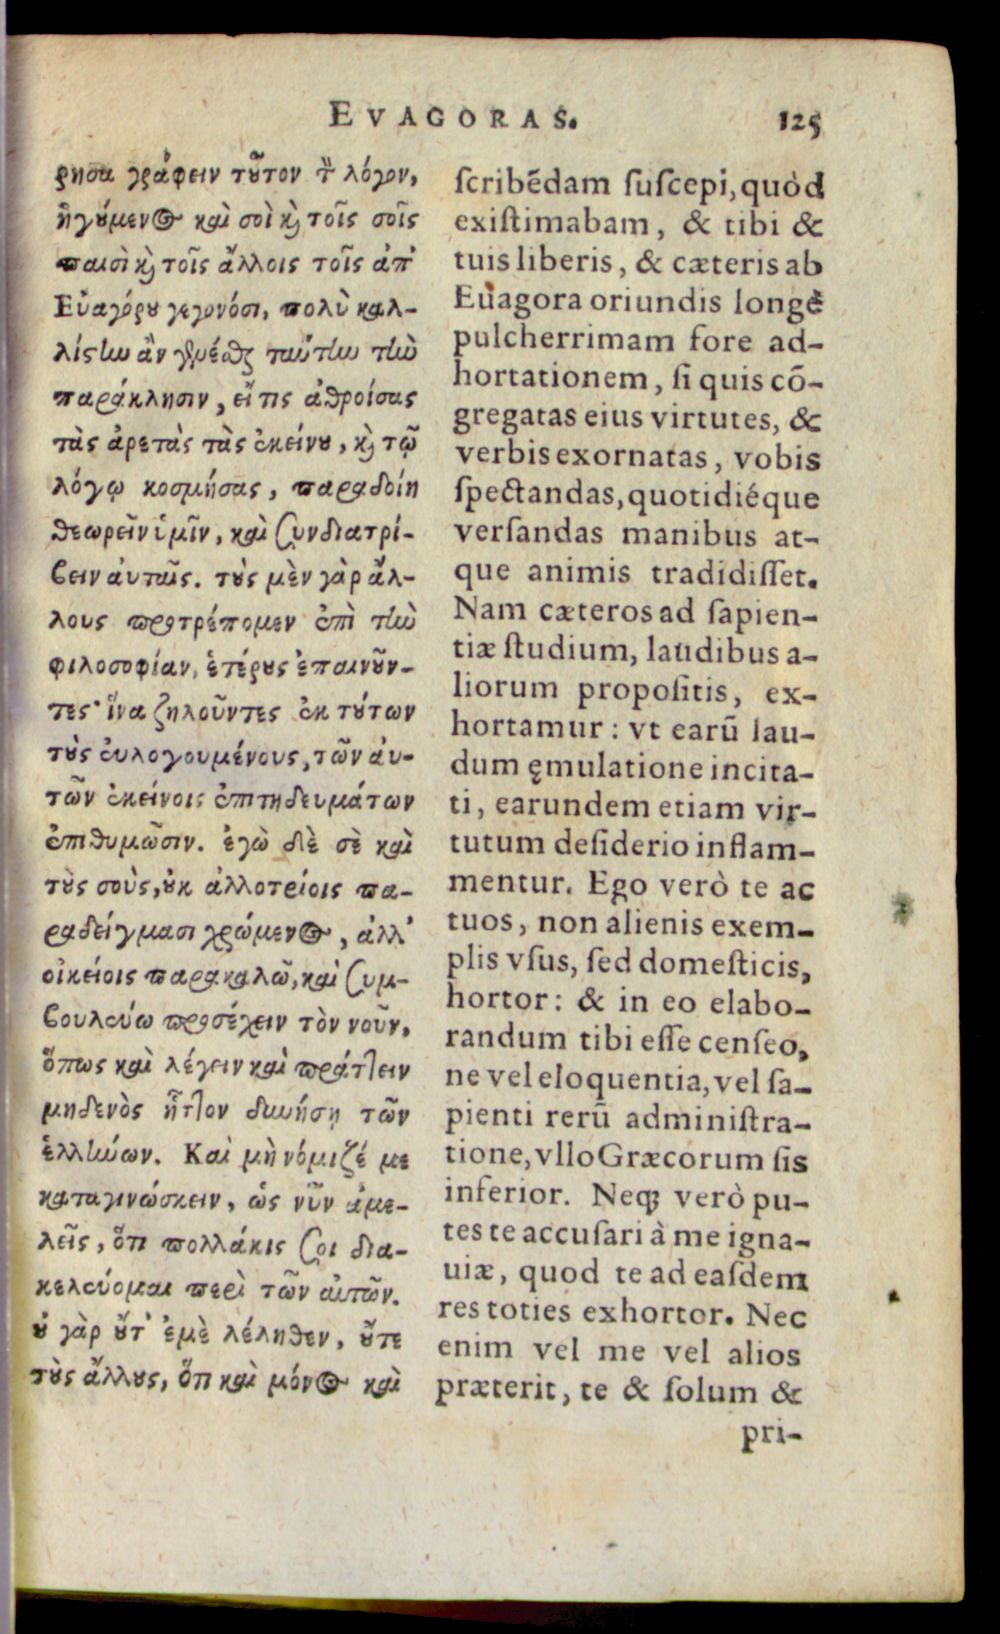 EVAGORAS. 125
ρησα γράφειν τοῦτον τὸν λόγον,
ἡγούμενος καὶ σοὶ καὶ τοῖς σοῖς
παισὶ καὶ τοῖς ἄλλοις τοῖς ἀπ'
Εὐαγόρου γεγονόσι, πολὺ καλ-
λίστην ἂν γενέσθαι ταύτην τὴν
παράκλησιν, εἴ τις ἀθροίσας
τὰς ἀρετὰς τὰς ἐκείνου, καὶ τῷ
λόγῳ κοσμήσας, παραδοίη
θεωρεῖν ὑμῖν, καὶ συνδιατρί-
βειν αὐταῖς. τοὺς μὲν γὰρ ἄλ-
λους προτρέπομεν ἐπὶ τὴν
φιλοσοφίαν, ἑτέρους ἐπαινοῦν-
τες· ἵνα ζηλοῦντες ἐκ τούτων
τοὺς εὐλογουμένους, τῶν αὐ-
τῶν ἐκείνοις ἐπιτηδευμάτων
ἐπιθυμῶσιν. ἐγὼ δὲ σὲ καὶ
τοὺς σοὺς, οὐκ ἀλλοτρίοις πα-
ραδείγμασι χρώμενος, ἀλλ'
οἰκείοις παρακαλῶ, καὶ συμ-
βουλεύω προσέχειν τὸν νοῦν,
ὅπως καὶ λέγειν καὶ πράττειν
μηδενὸς ἧττον δυνήσῃ τῶν
ἑλλήνων. Καὶ μὴ νόμιζέ με
καταγινώσκειν, ὡς νῦν ἀμε-
λεῖς, ὅτι πολλάκις σοι δια-
κελεύομαι περὶ τῶν αὐτῶν.
οὐ γὰρ οὔτ' ἐμὲ λέληθεν, οὔτε
τοὺς ἄλλους, ὅτι καὶ μόνος καὶ
scribẽdam suscepi, quòd
existimabam, & tibi &
tuis liberis, & cæteris ab
Euagora oriundis longè
pulcherrimam fore ad-
hortationem, si quis cõ-
gregatas eius virtutes, &
verbis exornatas, vobis
spectandas, quotidiéque
versandas manibus at-
que animis tradidisset.
Nam cæteros ad sapien-
tiæ studium, laudibus a-
liorum propositis, ex-
hortamur: vt earũ lau-
dum ęmulatione incita-
ti, earundem etiam vir-
tutum desiderio inflam-
mentur. Ego verò te ac
tuos, non alienis exem-
plis vsus, sed domesticis,
hortor: & in eo elabo-
randum tibi esse censeo,
ne vel eloquentia, vel sa-
pienti rerũ administra-
tione, vllo Græcorum sis
inferior. Neq; verò pu-
tes te accusari à me igna-
uiæ, quod te ad easdem
res toties exhortor. Nec
enim vel me vel alios
præterit, te & solum &
pri-